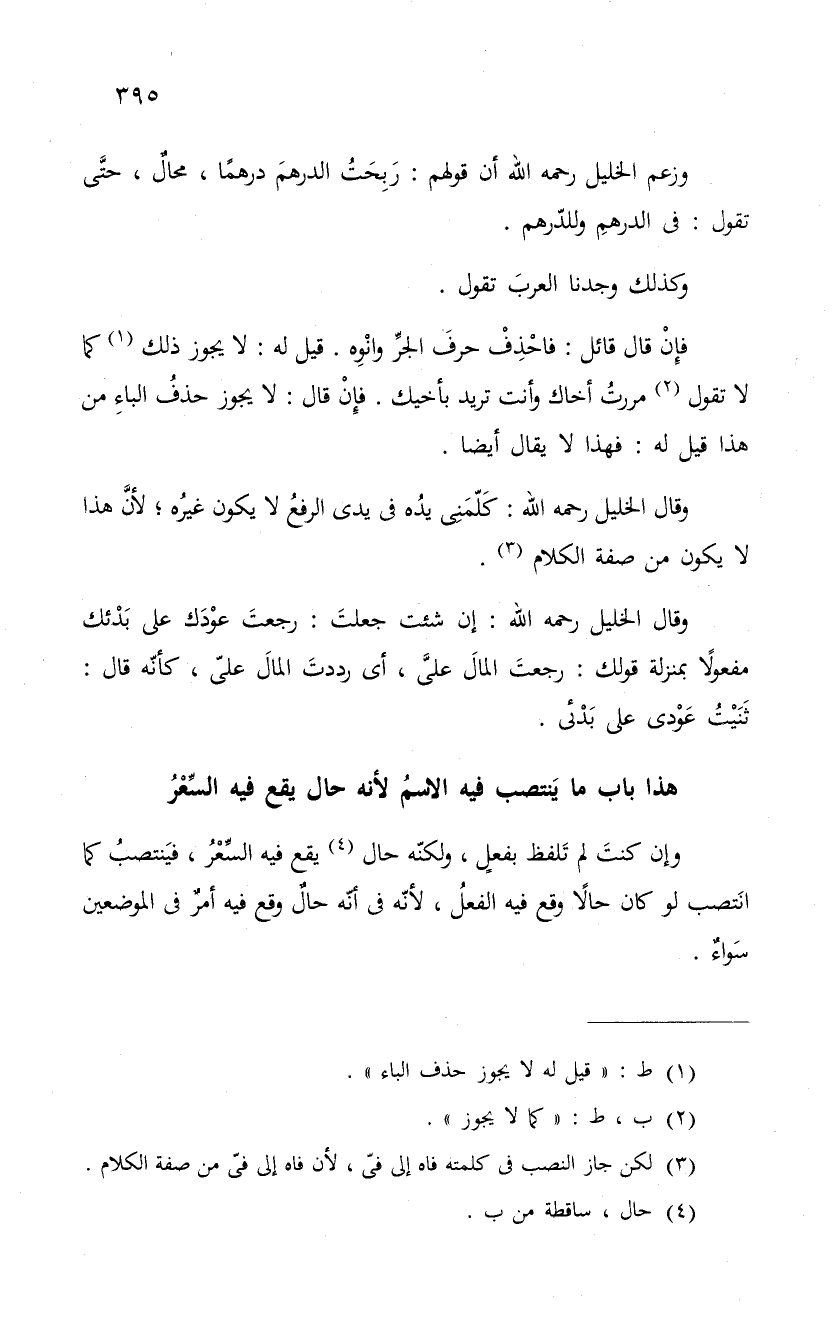 ٣٩٥
وزعم الخليل رحمه الله أن قولهم : رَبِحَتُ الدرهمَ درهمًا ، محالٌ ، حتَّى
تقول : فى الدرهمِ وللدّرهم .
وكذلك وجدنا العربَ تقول .
فإِنْ قال قائل : فاحْذِفْ حرفَ الجرِّ وانْوِه . قيل له : لا يجوز ذلك (١) كما
لا تقول (٢) مررتُ أخاك وأنت تريد بأخيك . فإِنْ قال : لا يجوز حذفُ الباءِ من
هذا قيل له : فهذا لا يقال أيضا .
وقال الخليل رحمه الله : كَلّمَنِى يدُه فى يدى الرفعُ لا يكون غيرُه ؛ لأنَّ هذا
لا يكون من صفة الكلام (٣) .
وقال الخليل رحمه الله : إن شئت جعلتَ : رجعتَ عوْدَك على بَدْئك
مفعولًا بمنزلة قولك : رجعتَ المالَ علىَّ ، أى رددتَ المالَ علىّ ، كأنّه قال :
ثَنَيْتُ عَوْدى على بَدْئى .
هذا باب ما يَنتصب فيه الاسمُ لأنه حال يقع فيه السِّعْرُ
وإن كنتَ لم تَلفظ بفعلٍ ، ولكنّه حال (٤) يقع فيه السِّعْرُ ، فيَنتصبُ كما
انَتصب لو كان حالًا وقع فيه الفعلُ ، لأنّه فى أنّه حالٌ وقع فيه أمرٌ فى الموضعين
سَواءٌ .
(١) ط : « قيل له لا يجوز حذف الباء » .
(٢) ب ، ط : « كما لا يجوز » .
(٣) لكن جاز النصب فى كلمته فاه إلى فىّ ، لأن فاه إلى فىّ من صفة الكلام .
(٤) حال ، ساقطة من ب .